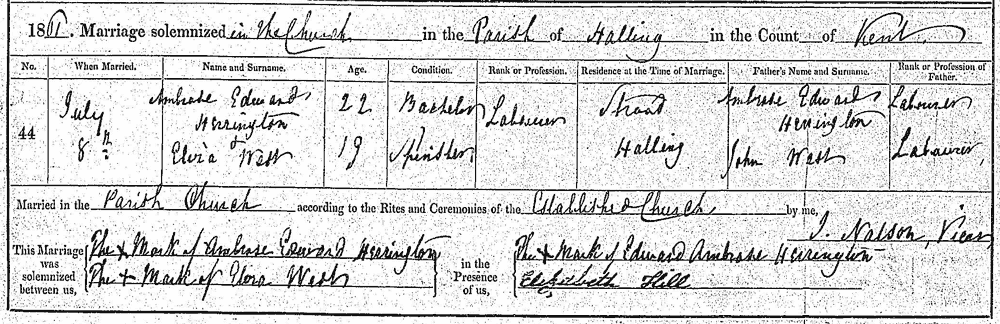 18 . Marriage solemnized in the Church in the Parish of Halling in the Count of Kent
No. When Married. Name and Surname. Age. Condition. Rank or Profession. Residence at the Time of Marriage. Father's Name and Surname. Rank or Profession of Father.
44 July 8th Ambrose Edward Herrington 22 Bachelor Labourer Strood Ambrose Edward Herrington Labourer
West 19 Spinster Halling John West Labourer
Married in the Parish Church according to the Rites and Ceremonies of the Established Church by me,
J. Nalson, Vicar
This Marriage was solemnized between us,
The X Mark of Ambrose Edward Herrington
The X Mark of West
in the Presence of us,
The X Mark of Edward Ambrose Herrington
Elizabeth Hill